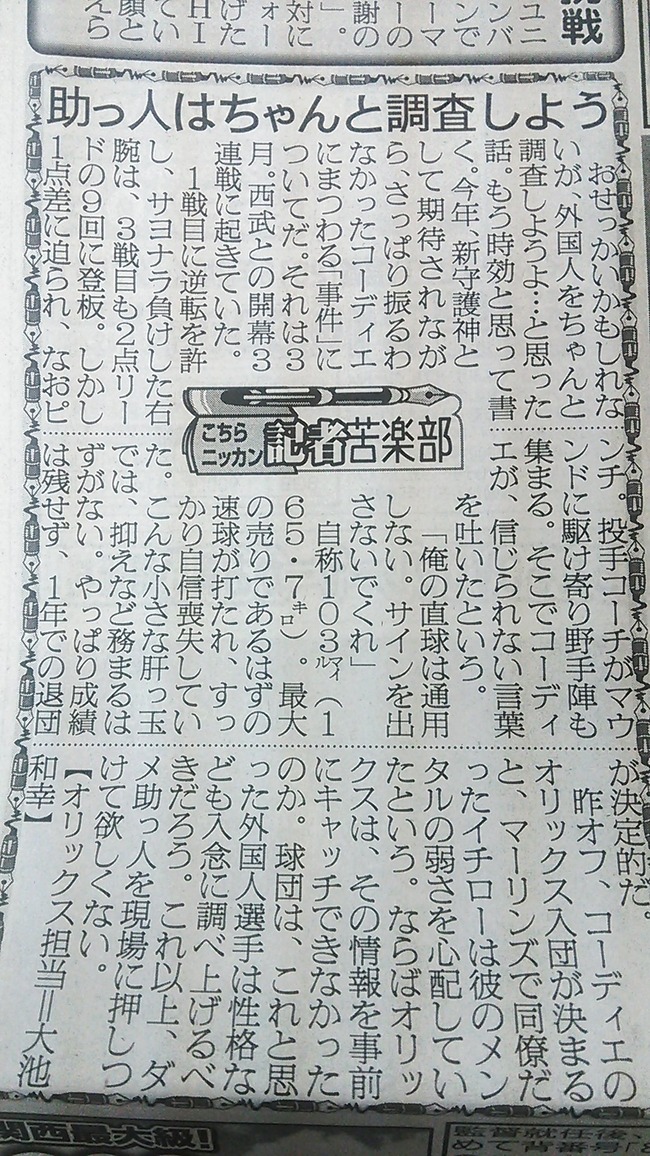 戦
ユニ
ンバ
ンで
ーマ
謝の
ーの
」。
対に
ォー
げた
ＨＩ
てい
顔と
えら
助っ人はちゃんと調査しよう
おせっかいかもしれな
いが、外国人をちゃんと
調査しようよ…と思った
話。もう時効と思って書
く。今年、新守護神と
して期待されなが
ら、さっぱり振るわ
なかったコーディエ
にまつわる「事件」に
ついてだ。それは３
月。西武との開幕３
連戦に起きていた。
１戦目に逆転を許
し、サヨナラ負けした右
腕は、３戦目も２点リー
ドの９回に登板。しかし
１点差に迫られ、なおピ
こちら
ニッカン
記者苦楽部
ンチ。投手コーチがマウ
ンドに駆け寄り野手陣も
集まる。そこでコーディ
エが、信じられない言葉
を吐いたという。
「俺の直球は通用
しない。サインを出
さないでくれ」
自称１０３㍄（１
６５・７㌔）。最大
の売りであるはずの
速球が打たれ、すっ
かり自信喪失してい
た。こんな小さな肝っ玉
では、抑えなど務まるは
ずがない。やっぱり成績
は残せず、１年での退団
が決定的だ。
昨オフ、コーディエの
オリックス入団が決まる
と、マーリンズで同僚だ
ったイチローは彼のメン
タルの弱さを心配してい
たという。ならばオリッ
クスは、その情報を事前
にキャッチできなかった
のか。球団は、これと思
った外国人選手は性格な
ども入念に調べ上げるべ
きだろう。これ以上、ダ
メ助っ人を現場に押しつ
けて欲しくない。
【オリックス担当＝大池
和幸】
関西最大級！
監督就任後、
めて背番号「